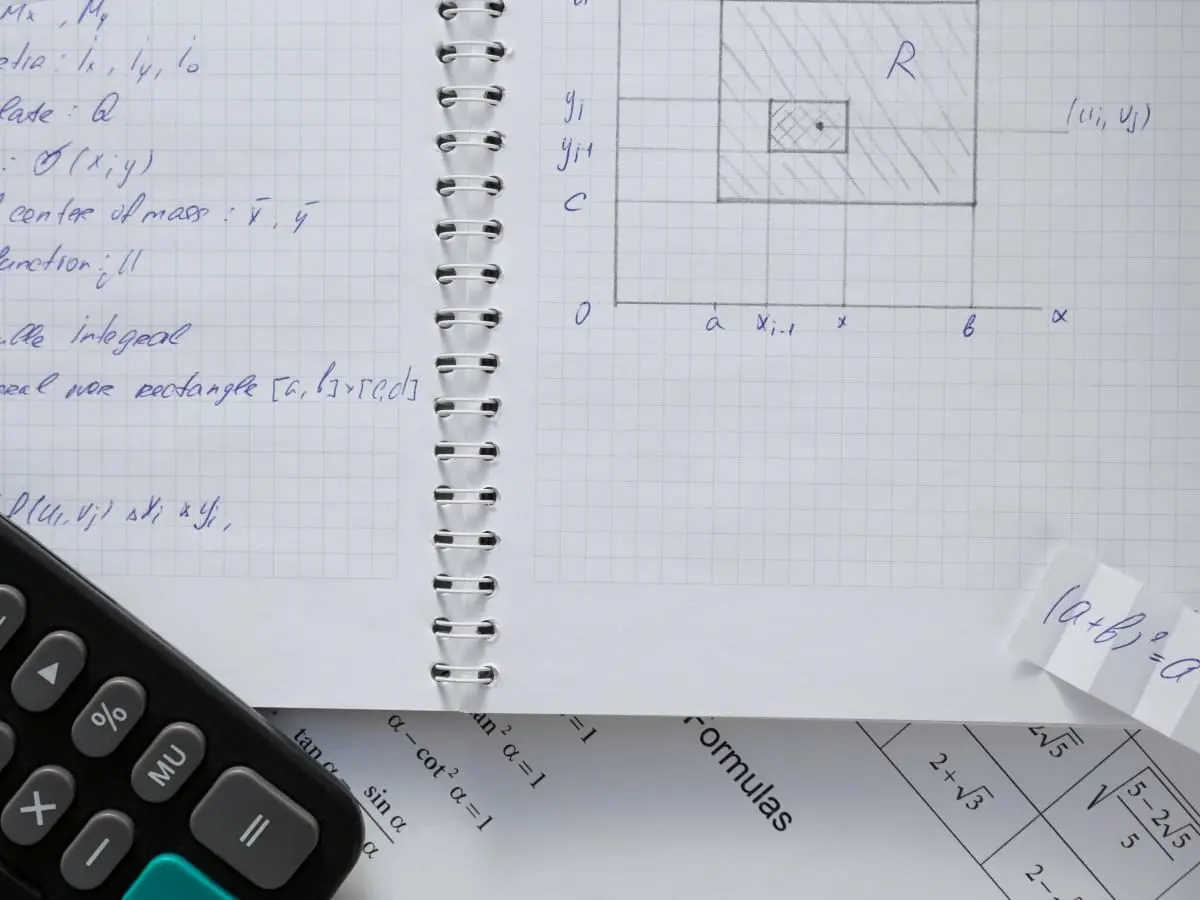 Mx, My
: Ix, Iy, Io
late : Q
: σ(x; y)
center of mass : x̄, ȳ
function : μ
integral
over rectangle [a, b]×[c,d]
(ui, vj) ΔXi
R
yj
(ui, vj)
yj-1
c
0
a
xi-1
x
b
x
(a+b)² = a
%
MU
×
−
=
tan α = sin α
α
α − cot² α = 1
tan² α = 1
= 1
Formulas
2 + √3
√5
√(5 − 2√5 / 5)
2 −